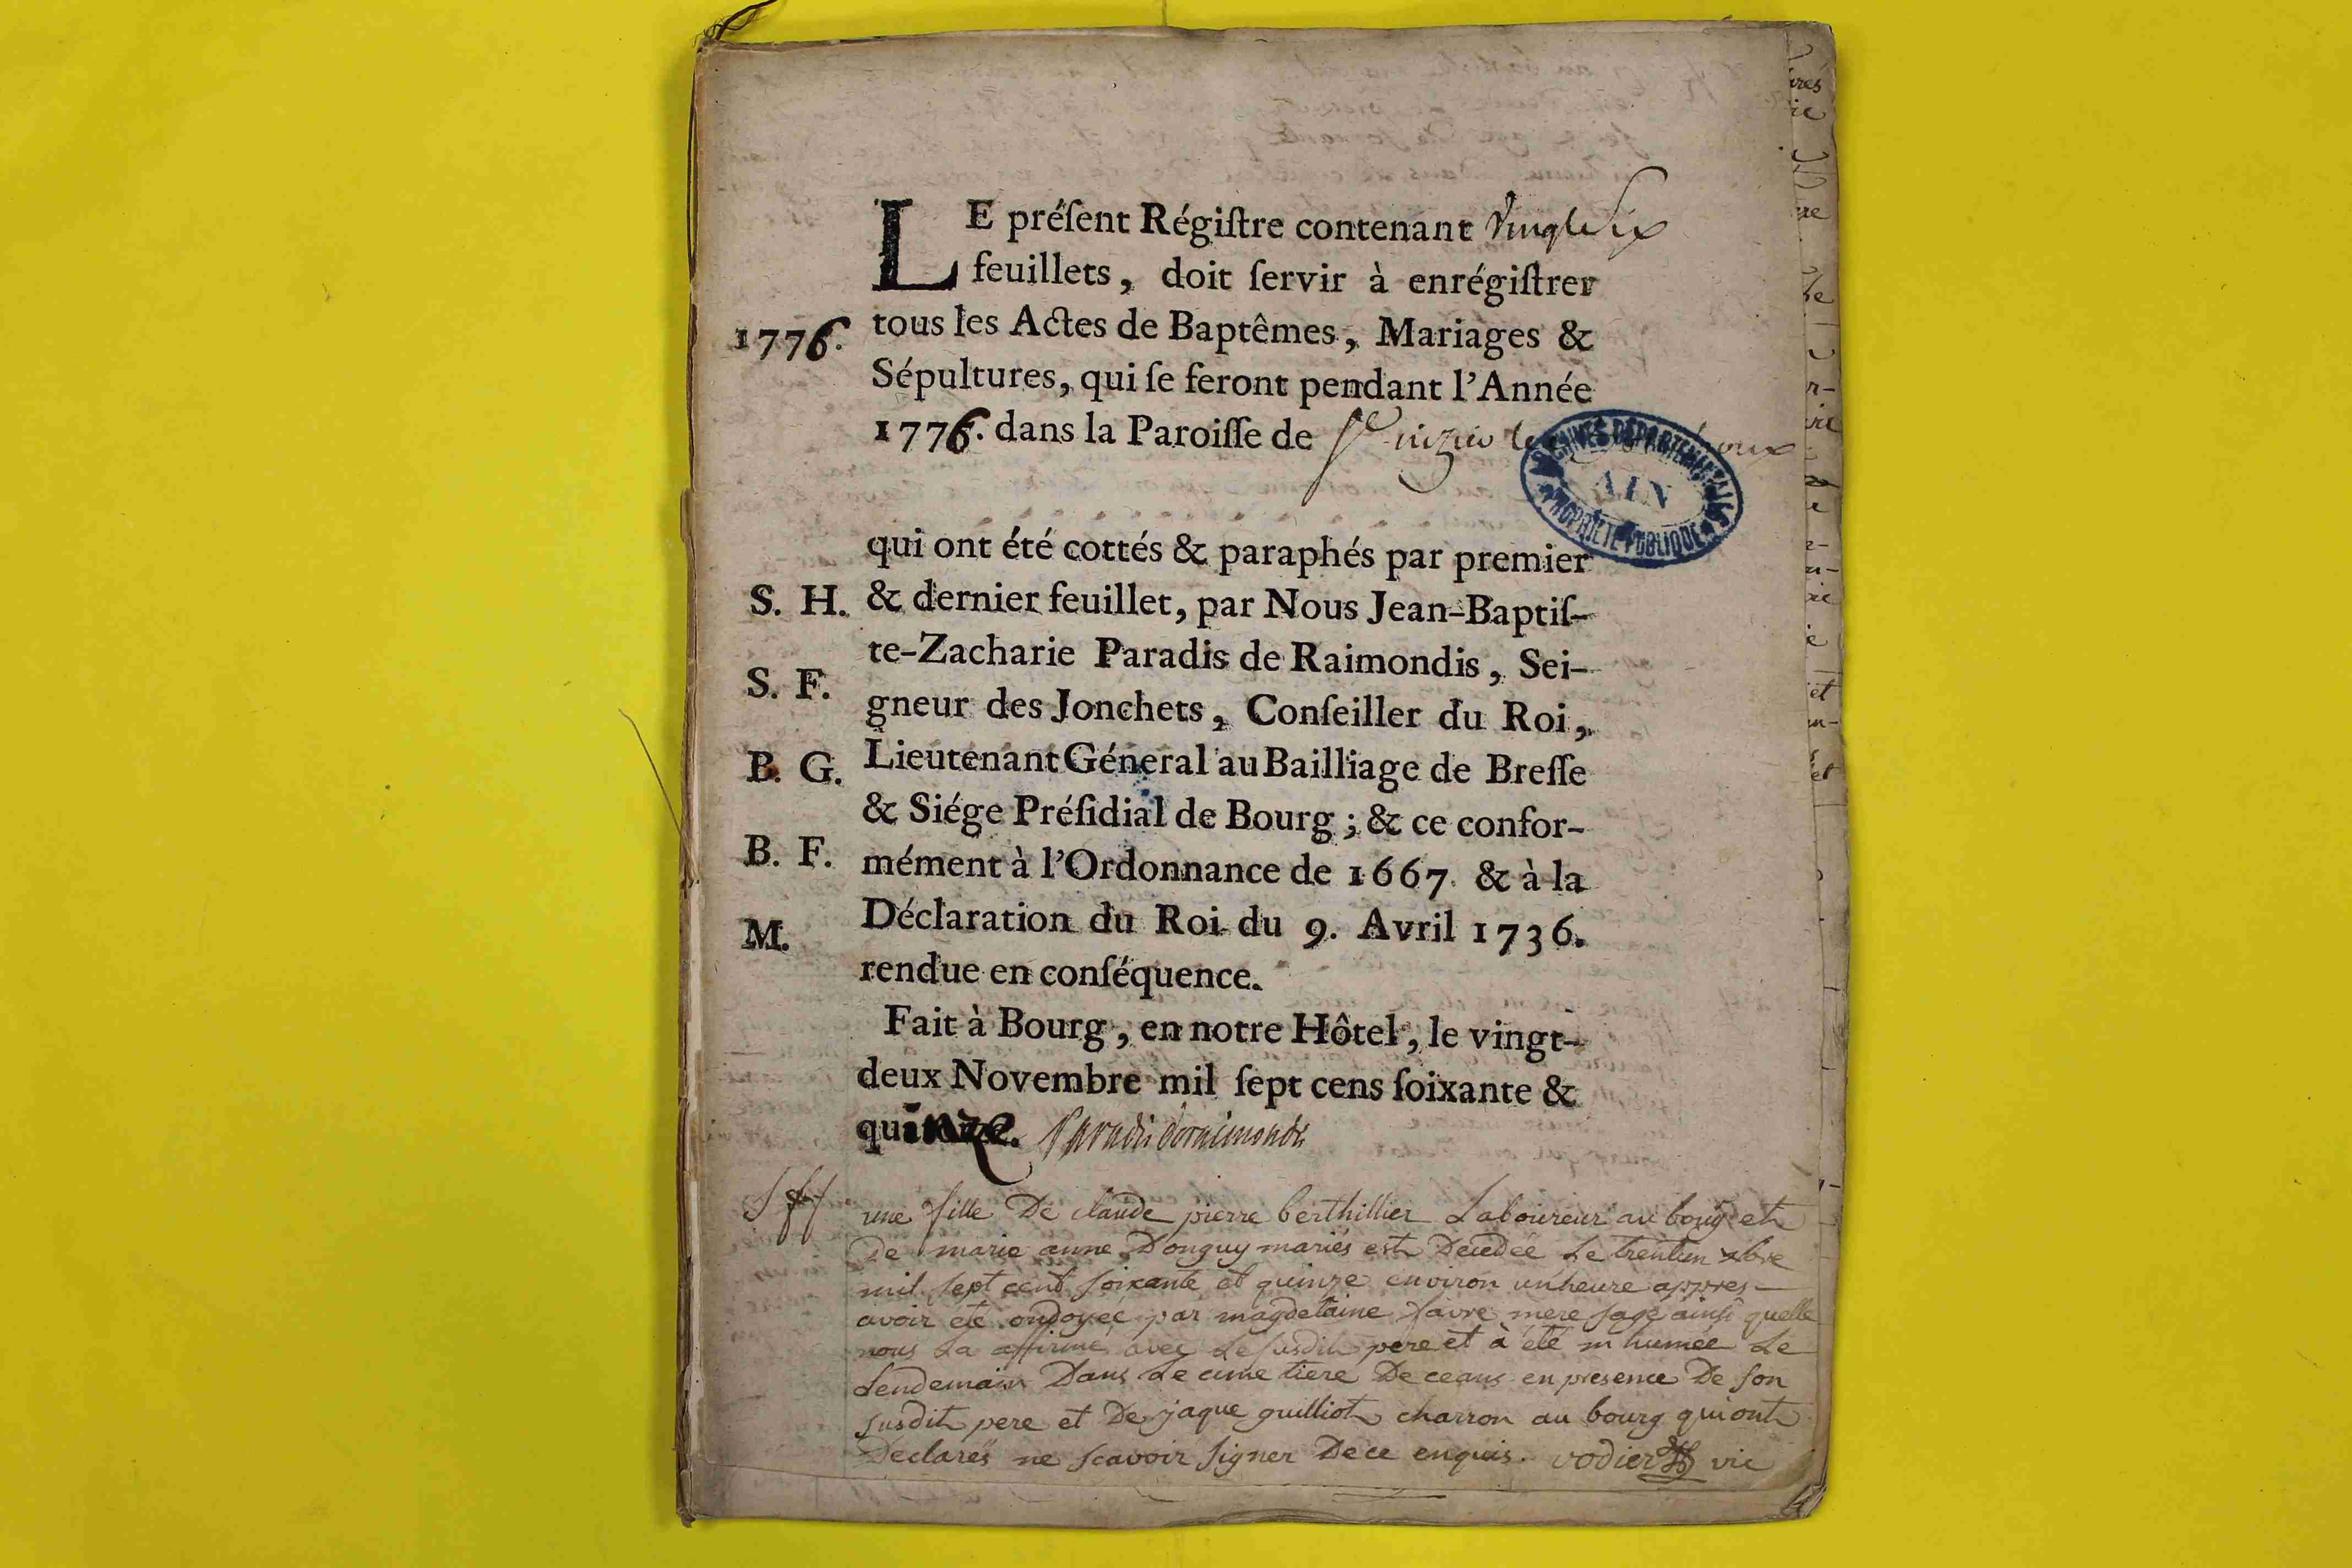 LE préſent Régiſtre contenant vingt Six
feuillets, doit ſervir à enrégiſtrer
1776. tous les Actes de Baptêmes, Mariages &
Sépultures, qui ſe feront pendant l'Année
1776. dans la Paroiſſe de St nizier le
ARCHIVES DÉPARTEMENTALES
AIN
PROPRIÉTÉ PUBLIQUE
qui ont été cottés & paraphés par premier
S. H. & dernier feuillet, par Nous Jean-Baptiſ-
te-Zacharie Paradis de Raimondis, Sei-
S. F.
gneur des Jonchets, Conſeiller du Roi,
B. G. Lieutenant Général au Bailliage de Breſſe
& Siége Préſidial de Bourg ; & ce confor-
B. F. mément à l'Ordonnance de 1667. & à la
M. Déclaration du Roi du 9. Avril 1736.
rendue en conſéquence.
Fait à Bourg, en notre Hôtel, le vingt-
deux Novembre mil ſept cens ſoixante &
quinze. Paradis deraimondis
Sff une fille De claude pierre berthillier Laboureur au bourg et
De marie anne Donguy mariés est Decedée Le trentun xbre
mil sept cent soixante et quinze environ unheure appres
avoir été ondoyée par magdelaine favre mere sage ainsi quelle
nous La affirmé avec Le susdit pere et à été inhumée Le
Lendemain Dans Le cimetiere De ceans en presence De son
susdit pere et De jaque guilliot charron au bourg qui ont
Declarés ne scavoir signer De ce enquis. vodier vic